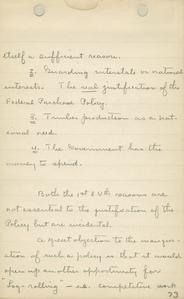 itself a sufficient reason.
2. Guarding interstate or national
interests. The real justification of the
Federal Purchase Policy.
3. Timber production as a nat-
ional need.
4. The Government has the
money to spend.
Both the 1st & 4th reasons are
not essential to the justification of the
Policy but are incidental.
A great objection to the
ation of such a policy is that it would
open up another opportunity for
"Log-rolling" - competitive work
73